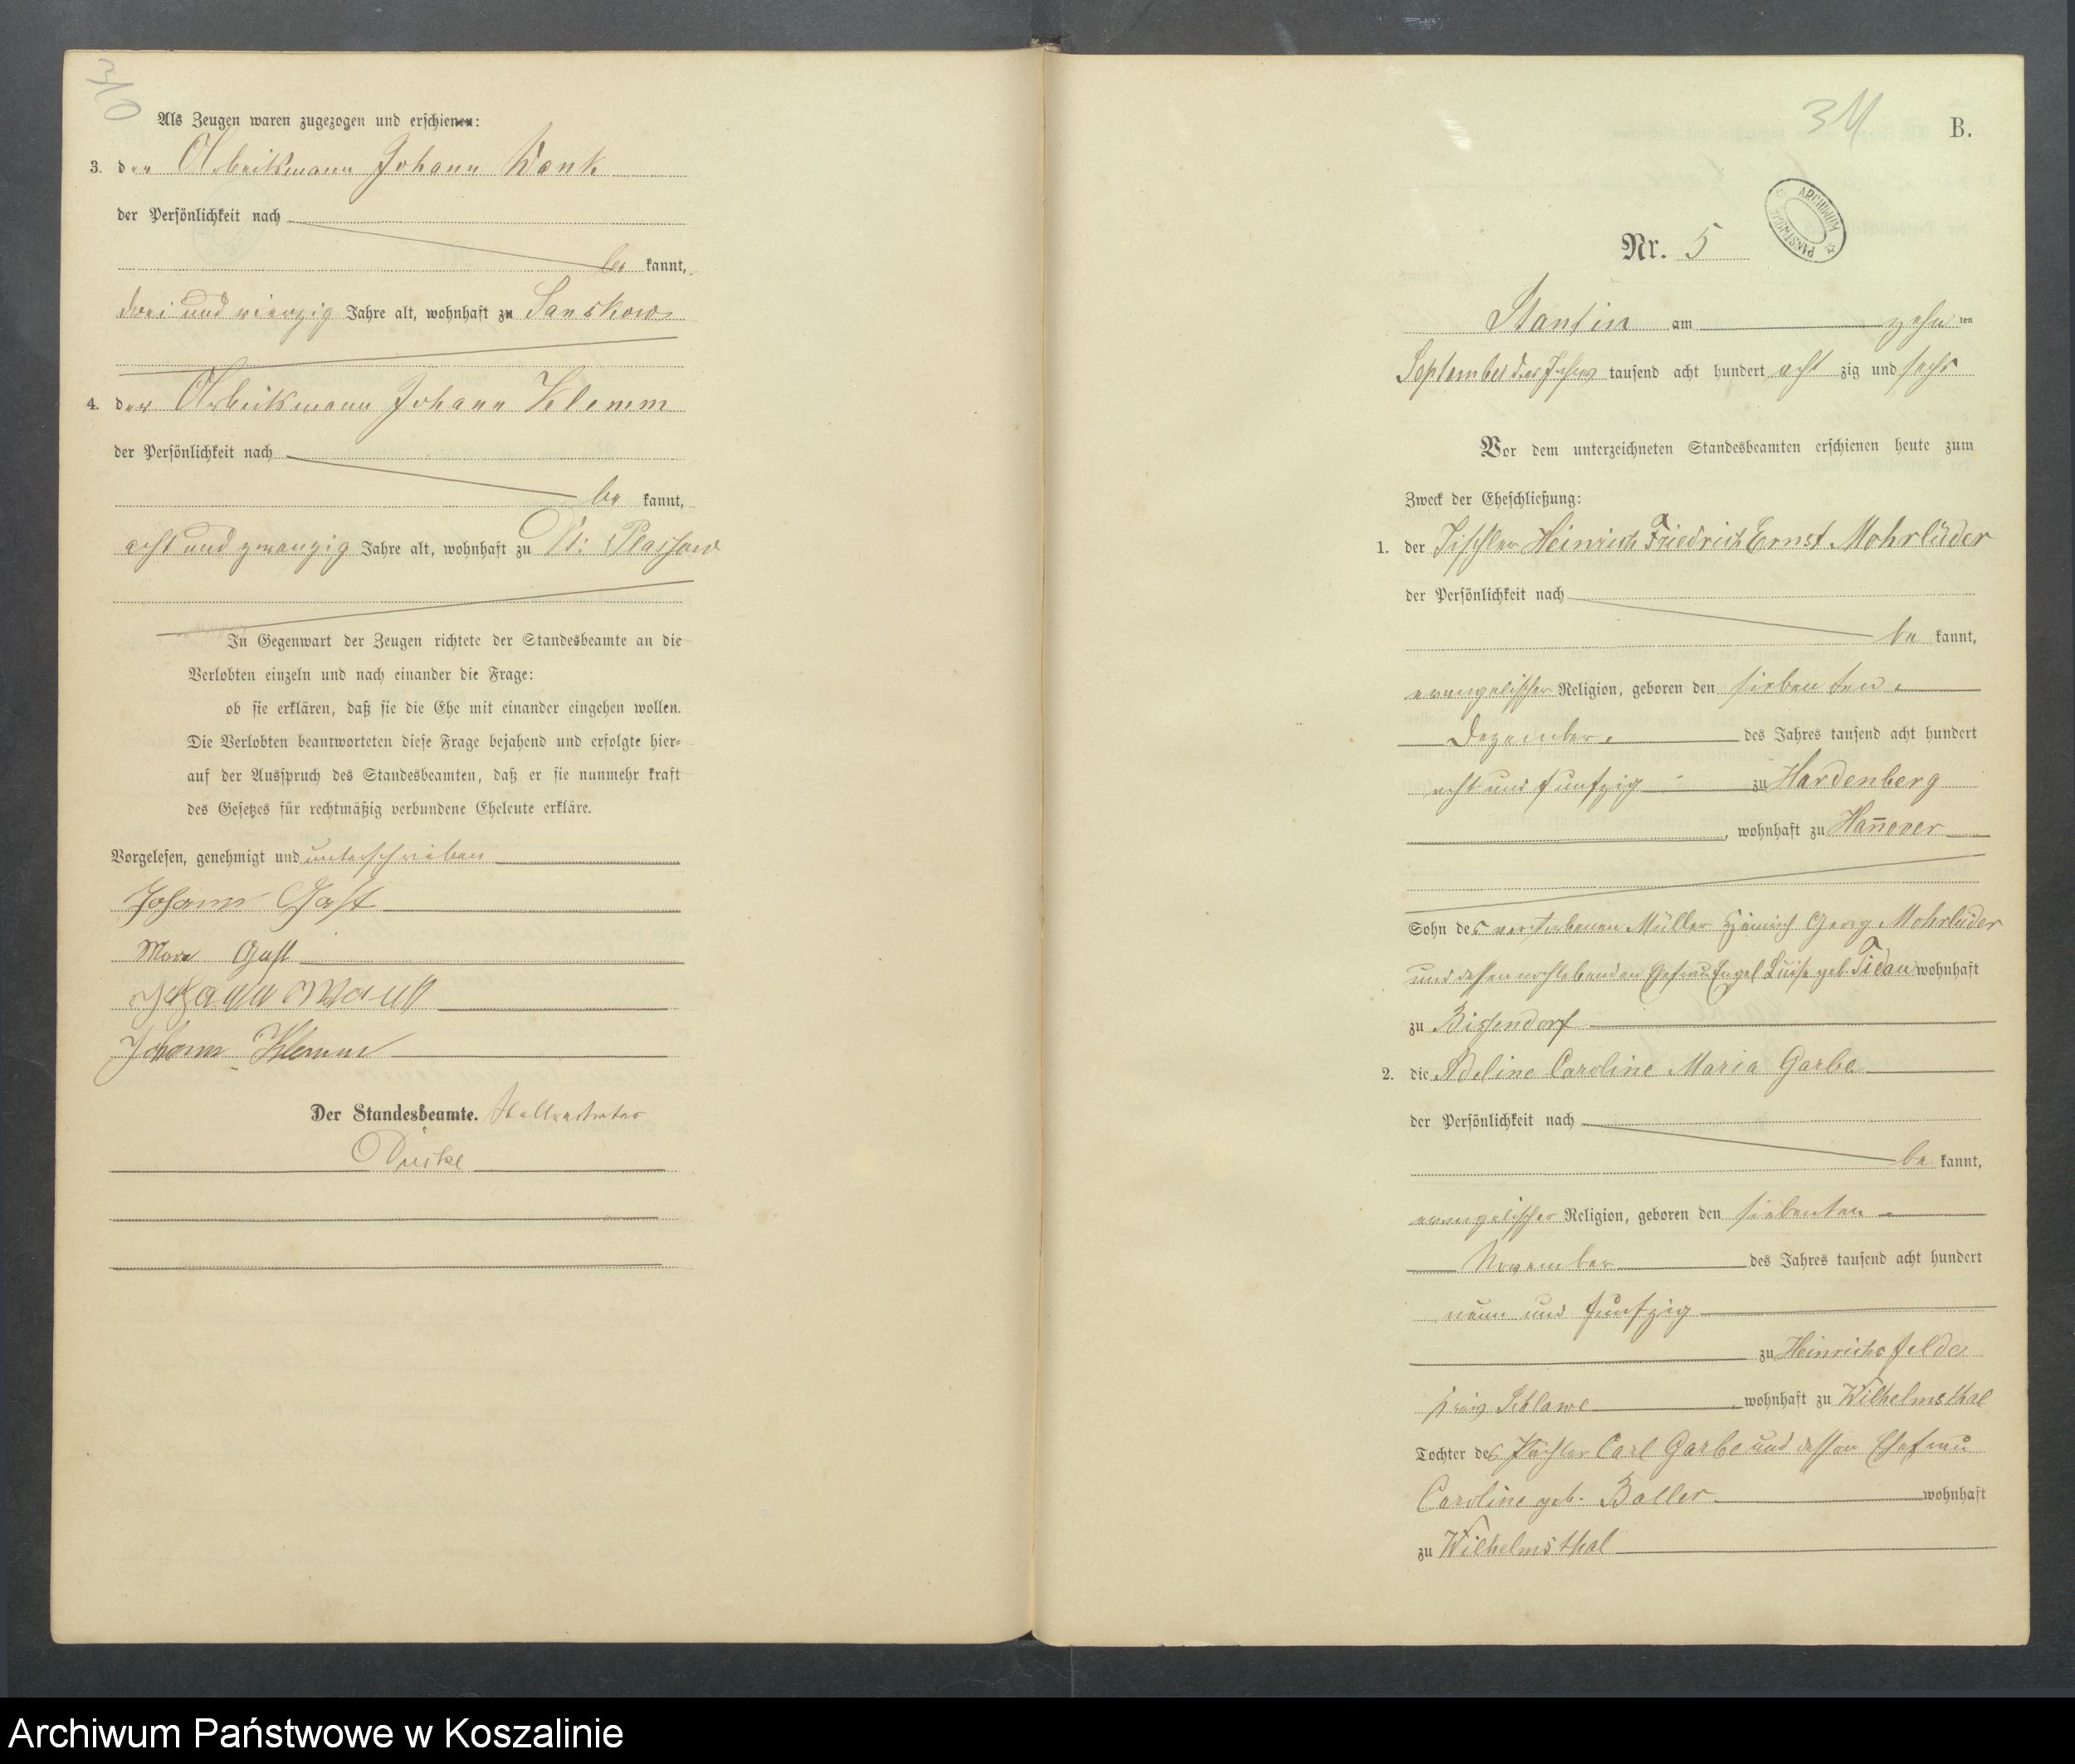 Als Zeugen waren zugezogen und erschienen:
3. der Arbeitsmann Johann Wank
der Persönlichkeit nach
be kannt,
drei und vierzig Jahre alt, wohnhaft zu Sanskow
4. der Arbeitsmann Johann Klemm
der Persönlichkeit nach
be kannt,
acht und zwanzig Jahre alt, wohnhaft zu
In Gegenwart der Zeugen richtete der Standesbeamte an die
Verlobten einzeln und nach einander die Frage:
ob sie erklären, daß sie die Ehe mit einander eingehen wollen.
Die Verlobten beantworteten diese Frage bejahend und erfolgte hier-
auf der Ausspruch des Standesbeamten, daß er sie nunmehr kraft
des Gesetzes für rechtmäßig verbundene Eheleute erkläre.
Vorgelesen, genehmigt und unterschrieben
Johann Gast
Gast
Johann Wank
Johann Klemm
Der Standesbeamte. Stellvertreter
311
B.
ARCHIWUM PAŃSTWOWE
Nr. 5
Stantin am zehn ten
September des Jahres tausend acht hundert acht zig und sechs
Vor dem unterzeichneten Standesbeamten erschienen heute zum
Zweck der Eheschließung:
1. der Tischler Heinrich Friedrich Ernst Mohrlüder
der Persönlichkeit nach
be kannt,
evangelischer Religion, geboren den siebenten
Dezember des Jahres tausend acht hundert
acht und funfzig zu Hardenberg
, wohnhaft zu Han̄over
Sohn des verstorbenen Müller Heinrich Georg Mohrlüder
und dessen nochlebenden Ehefrau Engel Luise geb. Tidau wohnhaft
zu Bissendorf
2. die Adeline Caroline Maria Garbe
der Persönlichkeit nach
be kannt,
evangelischer Religion, geboren den siebenten
November des Jahres tausend acht hundert
neun und funfzig
zu Heinrichsfelde
Kreis Schlawe, wohnhaft zu Wilhelmsthal
Tochter des Pächter Carl Garbe und dessen Ehefrau
Caroline geb. Baller wohnhaft
zu Wilhelmsthal
Archiwum Państwowe w Koszalinie